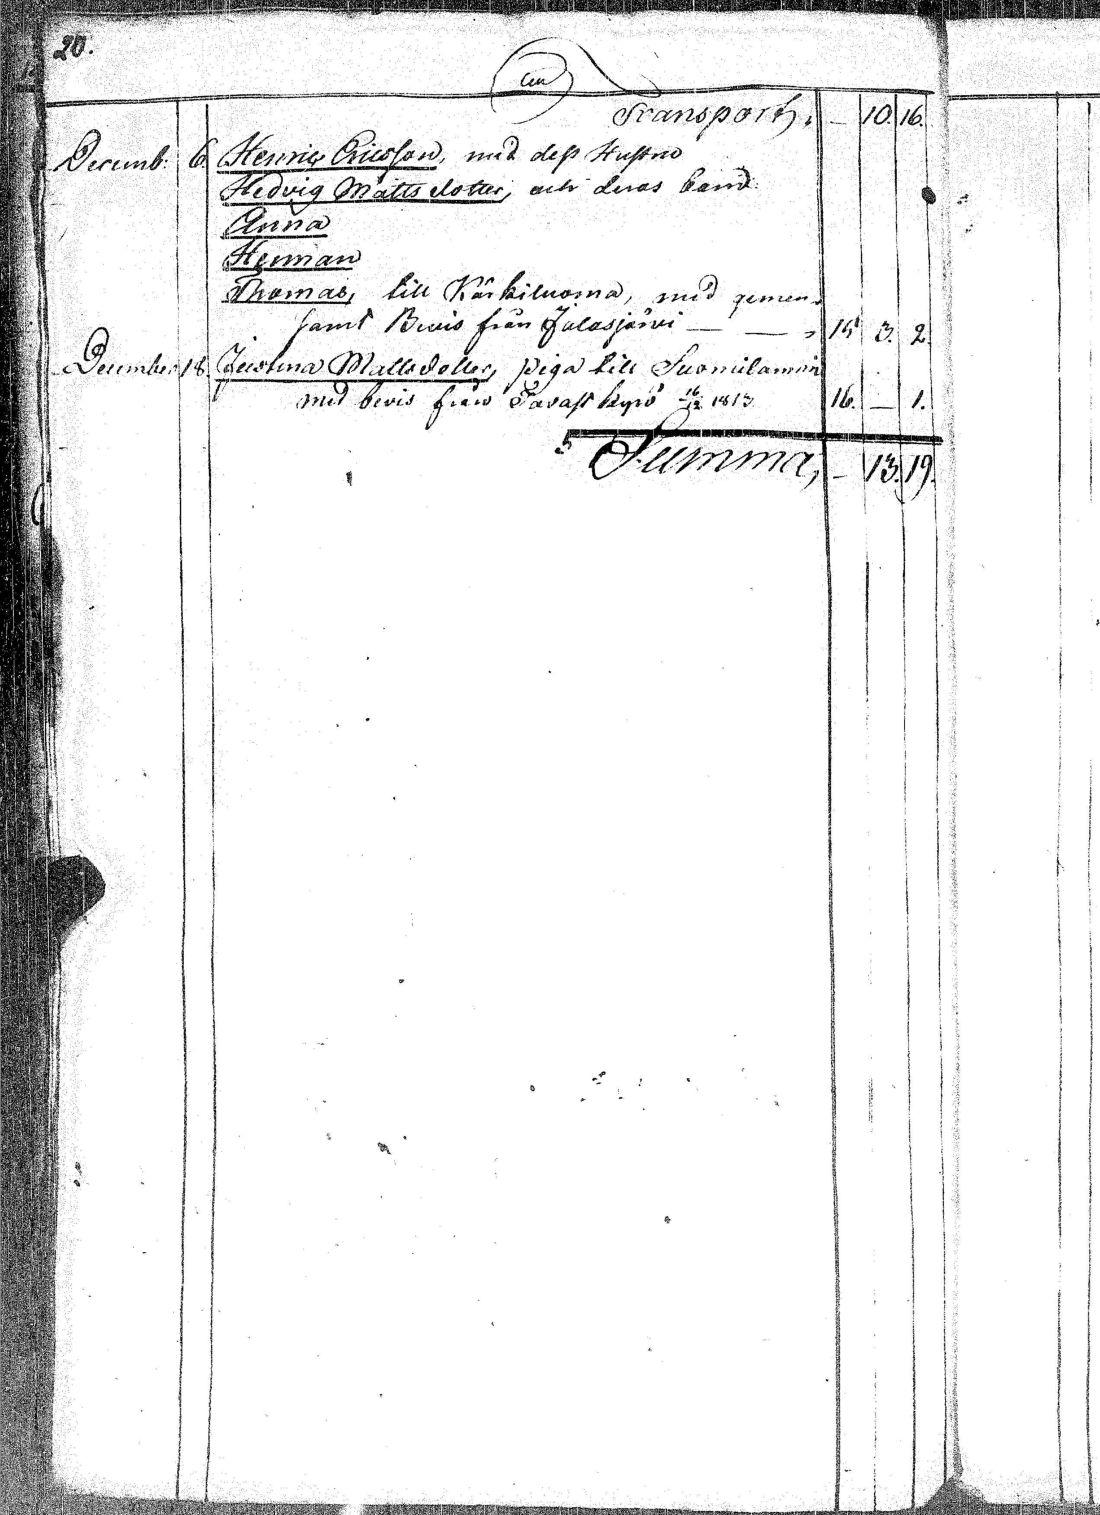 20.
Transport, — 10. 16.
Decemb: 6. Henric Ericsson, med dess Hustru
Hedvig Mattsdotter, och deras barn
Anna
Herman
Thomas, till Kärkiluoma, med gemen-
samt Bevis från Jalasjärvi — — , 15. 3. 2.
December 18. Justina Mattsdotter, piga till Suomilammi
med bevis från Tavastkyrö 16/12 1813 16. — 1.
Summa, — 13. 19.